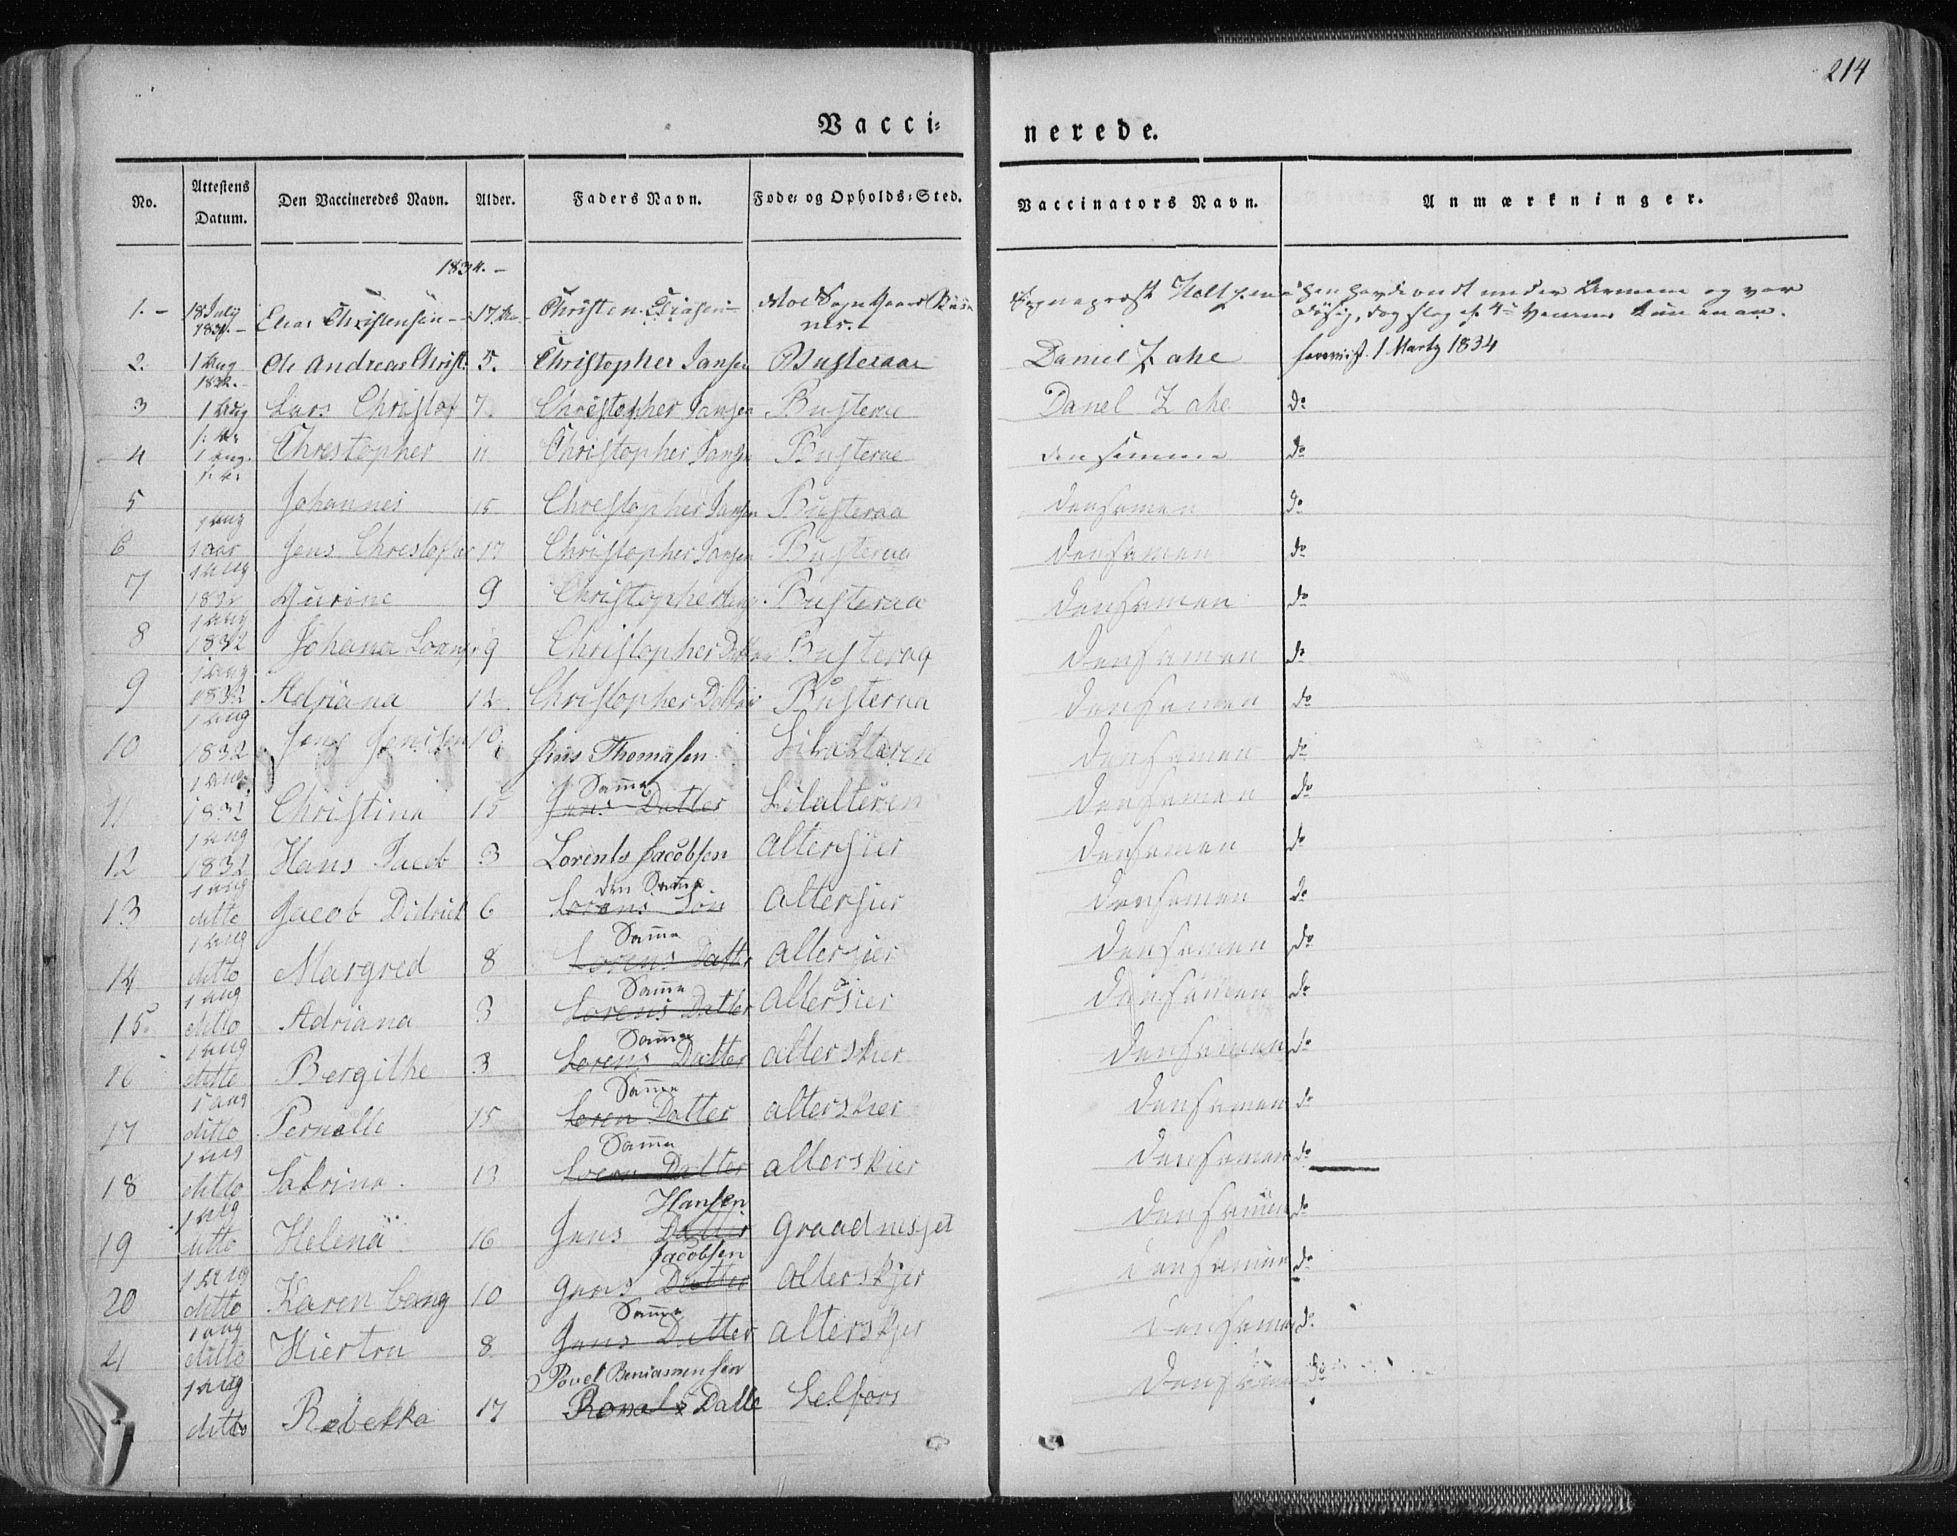 214
Vacci= nerede.
No. Attestens Datum. Den Vaccineredes Navn. Alder. Faders Navn. Føde= og Opholds=Sted. Vaccinators Navn. Anmærkninger.
1834. –
1. – 18 July 1834. – Elias Christensen – 17 Christen Moe Sogn Sognepræst han havde ondt under Armene og var
døsig, dog slog af 4re
2. 1 Aug 1832. Ole Andreas Christ. 5. Christopher Jansen Busteraae Daniel Zahe foreviist 1 Marty 1834
3 1 Aug Lars Christof 7. Christopher Jansen Busterae Danel Zahe do
4 1 Aug. Chrestopher 11 Christopher Jansen Busterae den samme do
5 Johannes 15 Chrestopher Jansen Busteraa densamen do
6 1 aug 1 aar Jens Chrestofer 17 Christopher Jansen Busteraa densamen do
7 1 Aug 1832 Gurine 9 Christopher Busteraa densamen do
8 1 Aug 1832 Johana 9 Christopher Datter Busteraa densamen do
9 1 Aug 1832 Adriana 12 Christopher Datter Busteraa densamen do
10 1 Aug 1832 Jens Jensen 10. Jens Thomasen Lilalteren densamen do
11 1 Aug. 1832 Christina 15 Samme Jens Datter Lilalteren densamen do
12 1 Aug 1832 Hans Jacob 3 Lorents Jacobsen altersier densamen do
13 1 aug ditto Jacob Didrick 6 den Samme Lorens Søn altersier densamen do
14 1 Aug ditto Margred 8 Samme Lorens Datter altersier densamen do
15. 1 aug ditto Adriana 3 Samme Lorens Datter altersier densamen do
16 1 Aug ditto Bergithe 3 Samme Lorens Datter alterskier densamen do
17 1 aug ditto Pernelle 15 Samme Loren Datter alterskier densamen do
18 1 aug ditto Sakrina. 13 Samme Loren Datter alterskier densamen do
19 1 aug ditto Helena 16 Jens Hansen Datter Graadnesjet densamen do
20 1 Aug ditto Karen 10 Jens Jacobsen Datter alterskjer densamen do
21 1 aug ditto Hiertru 8. Samme Jens Datter alterskjer densamen do
1 Aug ditto Rebekka 17 Povel Beniamensen Datte Selfors densamen do